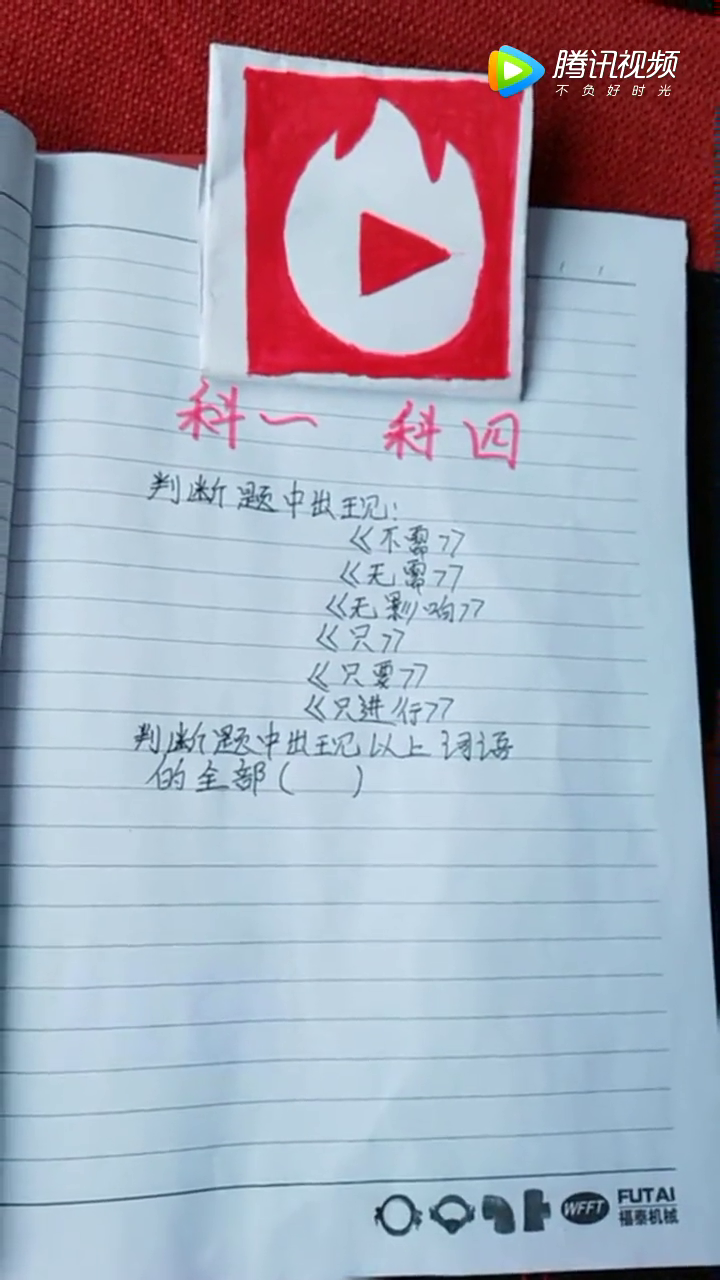 腾讯视频
不负好时光
科一 科四
判断题中出现:
《不需》
《无需》
《无影响》
《只》
《只要》
《只进行》
判断题中出现以上词语
的全部( )
WFFT
FUTAI
福泰机械